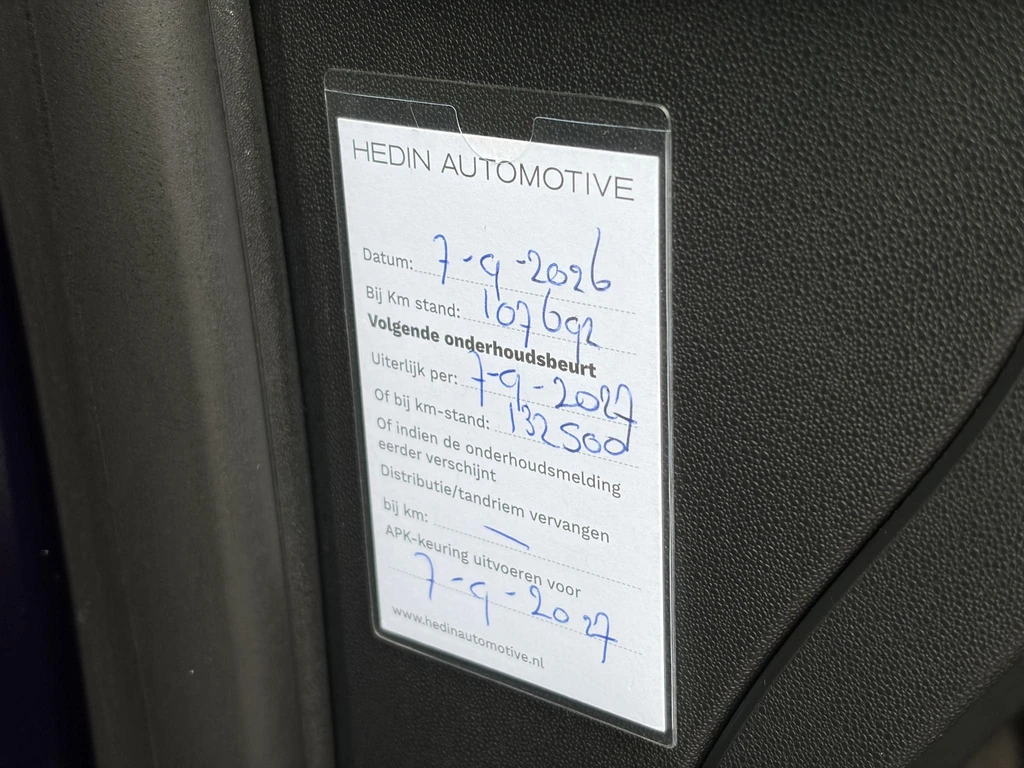 HEDIN AUTOMOTIVE
Datum: 7-9-2026
Bij Km stand: 107692
Volgende onderhoudsbeurt
Uiterlijk per: 7-9-2027
Of bij km-stand: 132500
Of indien de onderhoudsmelding
eerder verschijnt
Distributie/tandriem vervangen
bij km: —
APK-keuring uitvoeren voor
7-9-2027
www.hedinautomotive.nl